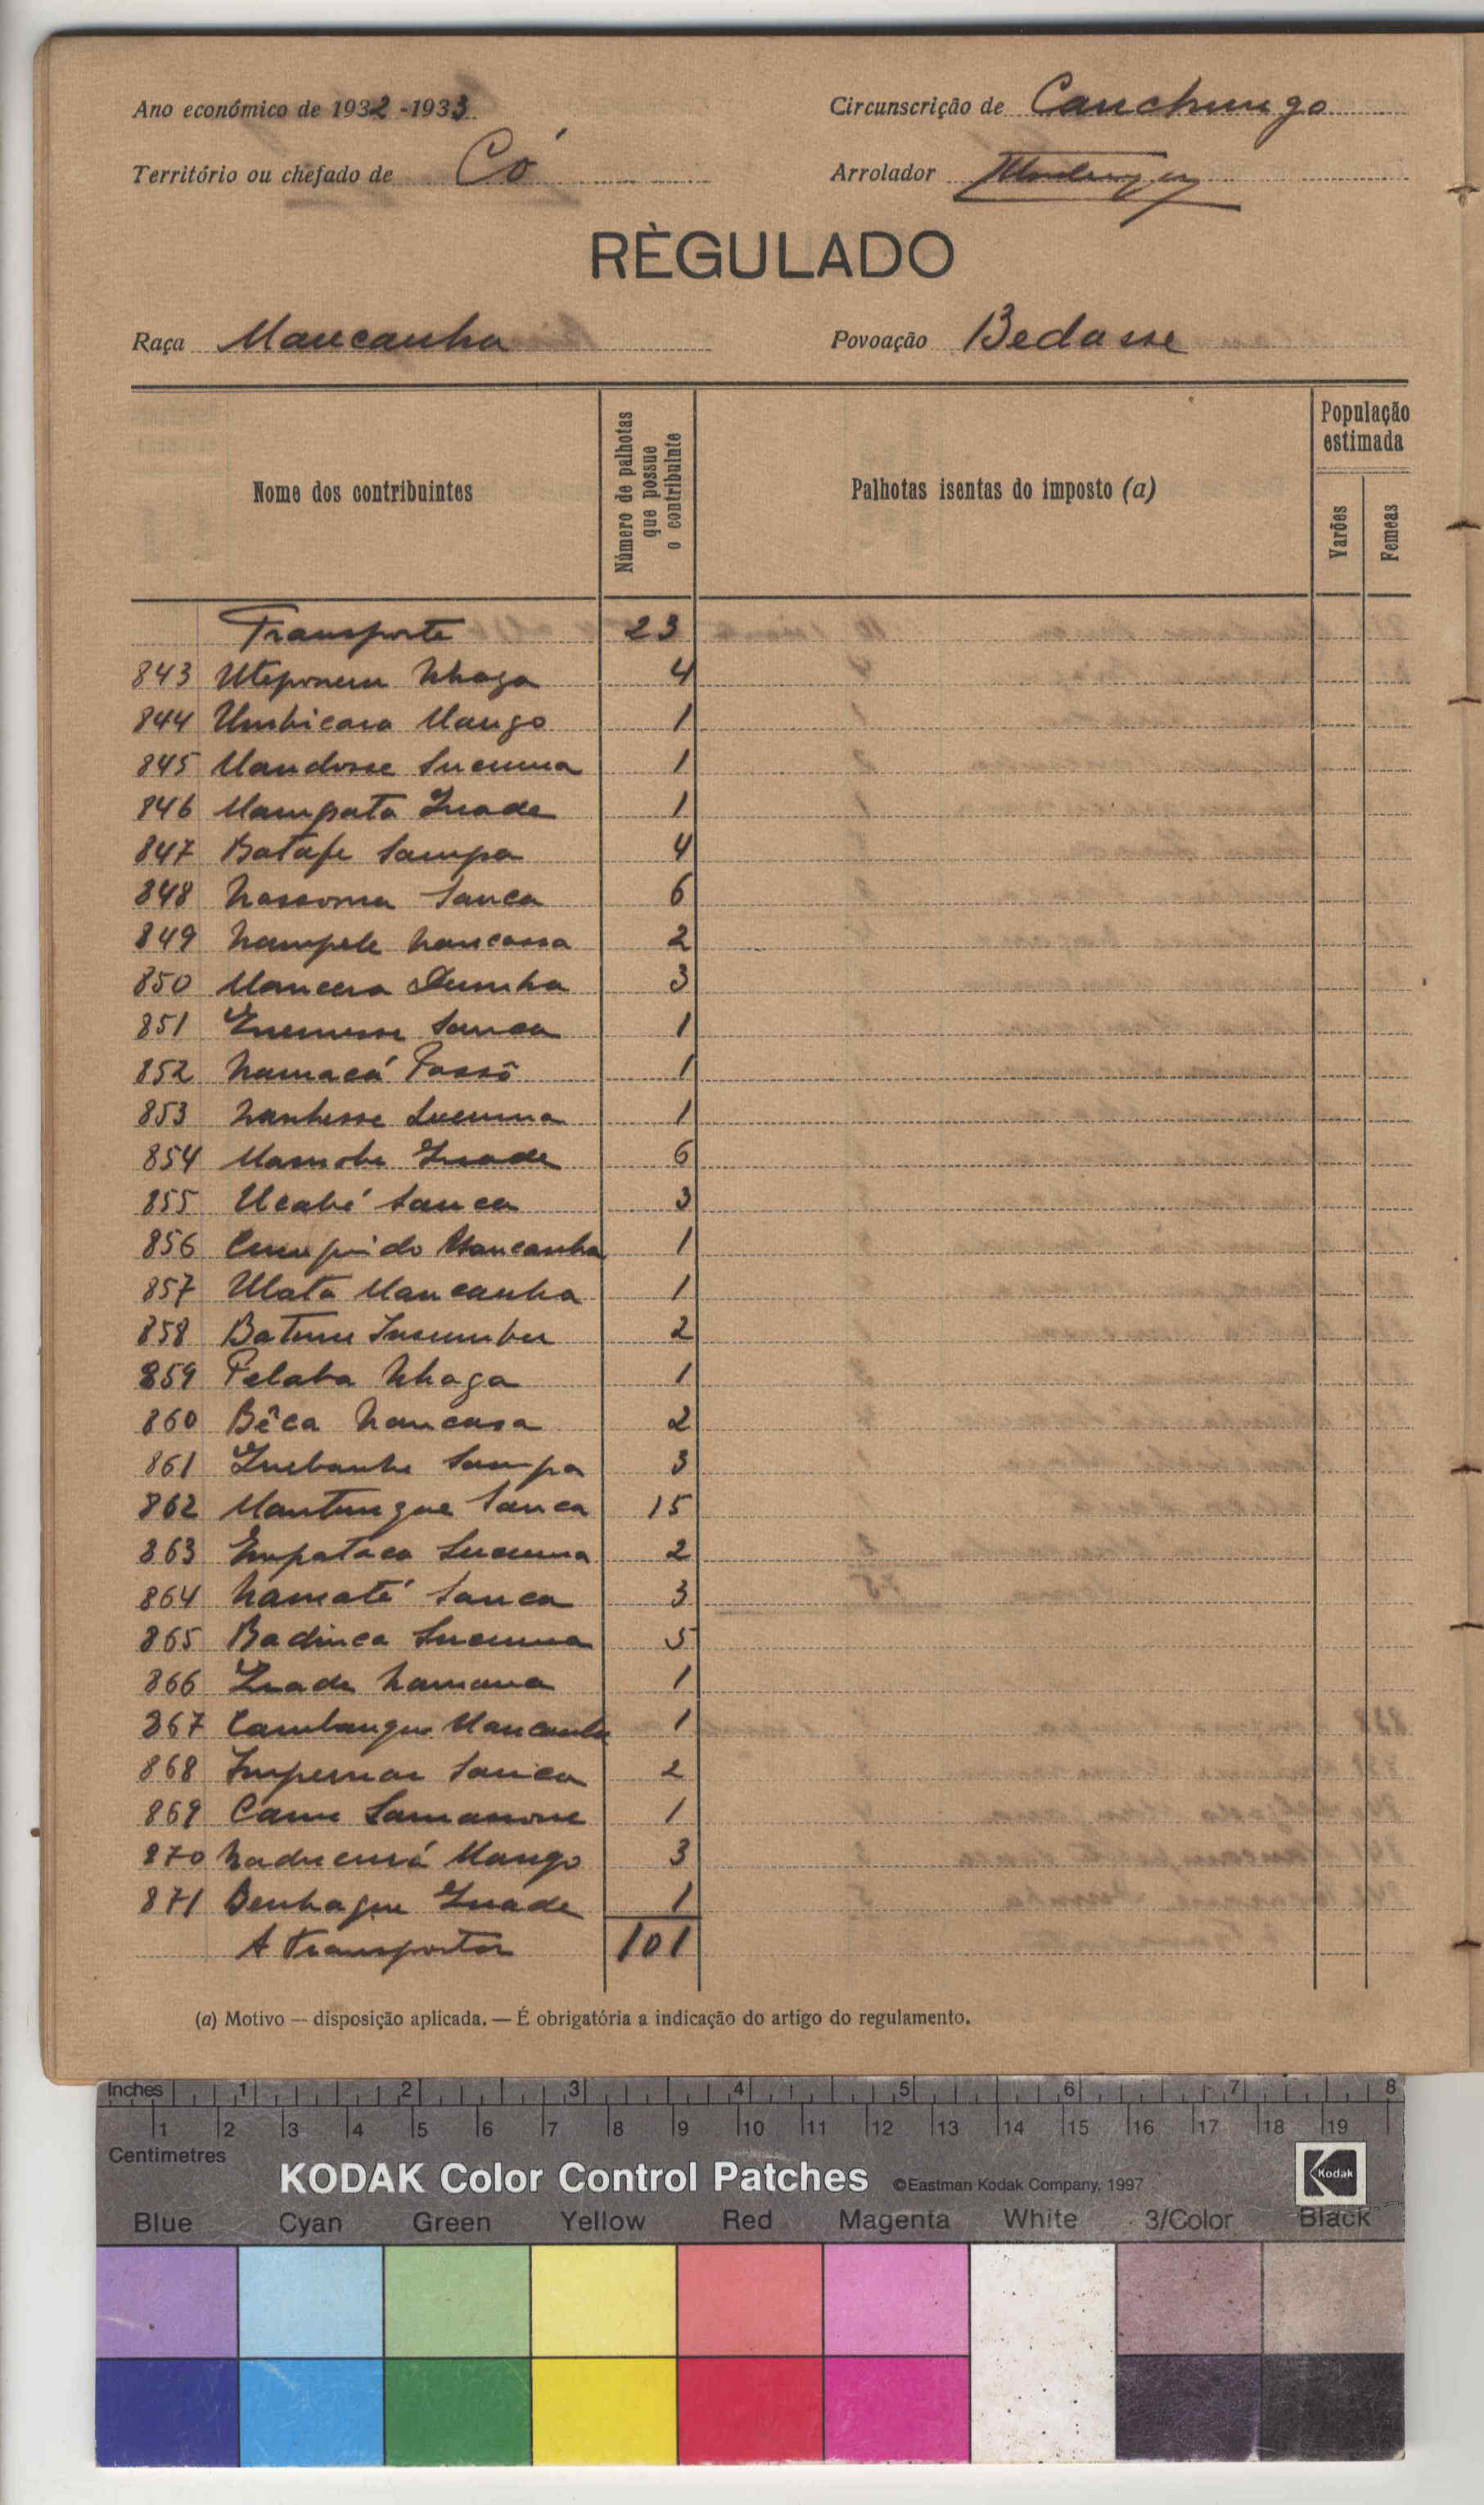 Ano económico de 1932-1933
Circunscrição de Canchungo
Território ou chefado de Có
Arrolador
RÈGULADO
Raça Mancanha
Povoação Bedasse
Nome dos contribuintes
Número de palhotas que possue o contribuinte
Palhotas isentas do imposto (a)
População estimada
Varões
Femeas
Transporte 23
843 Uteponem Nhaga 4
844 Umbicara Mango 1
845 Mandosse Sucuma 1
846 Mampata Inade 1
847 Batafe Sampa 4
848 Nassoma Sanca 6
849 Nampele Nancassa 2
850 Mancera Dumha 3
851 Sanca 1
852 Namacá Fassô 1
853 Nanhesse Sucuma 1
854 Mamobe Inade 6
855 Ucabé Sanca 3
856 Cumprido Mancanha 1
857 Ulata Mancanha 1
858 2
859 Pelaba Nhaga 1
860 Bêca Nancassa 2
861 Inebanhe Sampa 3
862 Mantungue Sanca 15
863 Empataca Sucuma 2
864 Namaté Sanca 3
865 Badinca Sucuma 5
866 Inade Namana 1
867 Cambangue Mancanha 1
868 Impernar Sanca 2
869 1
870 Naducurá Mango 3
871 Benhague Inade 1
A transportar 101
(a) Motivo — disposição aplicada. — É obrigatória a indicação do artigo do regulamento.
Inches 1 2 3 4 5 6 7 8
1 2 3 4 5 6 7 8 9 10 11 12 13 14 15 16 17 18 19
Centimetres
KODAK Color Control Patches ©Eastman Kodak Company, 1997 Kodak
Blue Cyan Green Yellow Red Magenta White 3/Color Black